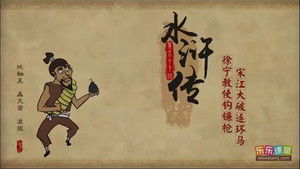 水浒传
徐宁教使钩镰枪
宋江大破连环马
地轴星 轰天雷 凌振
乐乐课堂
leleketang.com